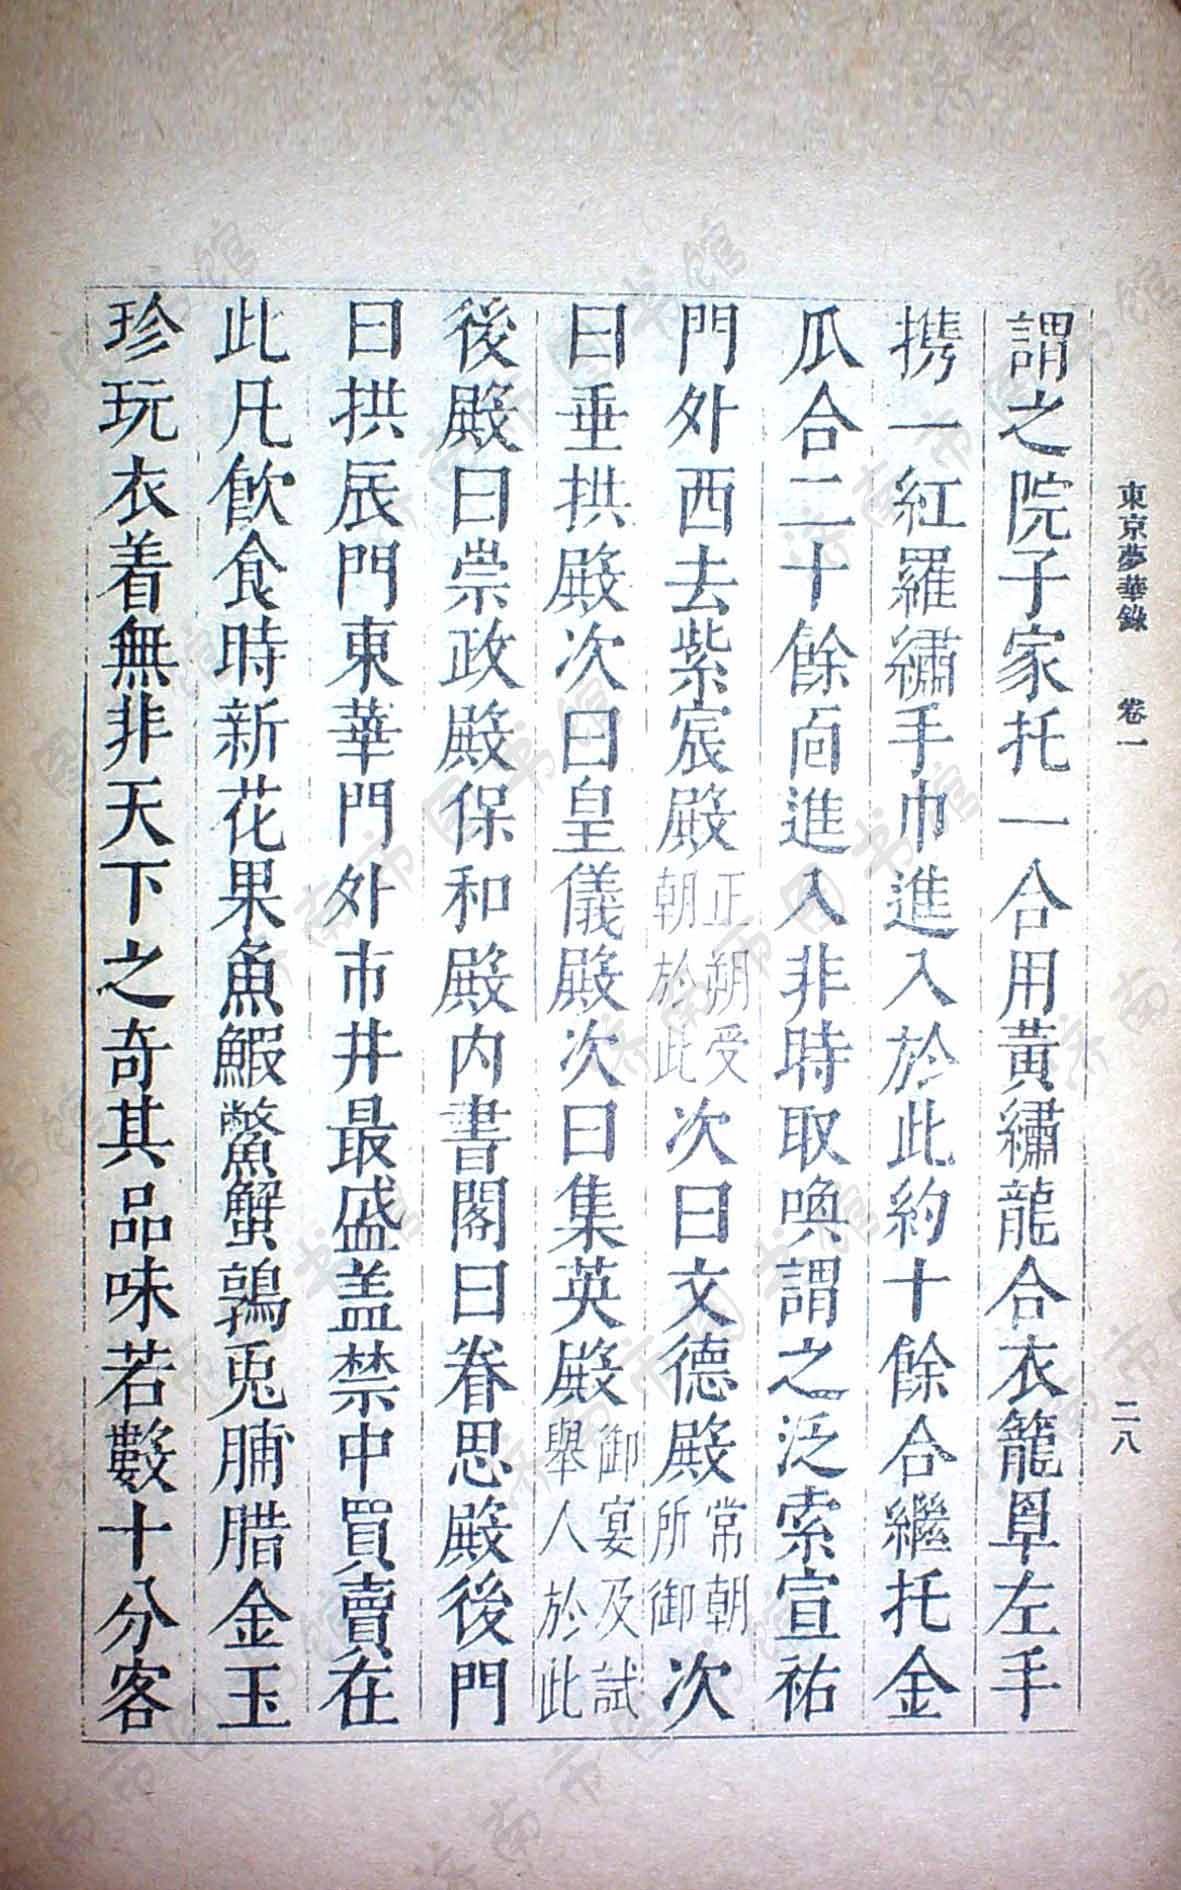 東京夢華錄　卷一
二八
謂之院子家托一合用黃繡龍合衣籠罩左手
携一紅羅繡手巾進入於此約十餘合繼托金
瓜合二十餘面進入非時取喚謂之泛索宣祐
門外西去紫宸殿正朔受朝於此次曰文德殿常朝所御次
曰垂拱殿次曰皇儀殿次曰集英殿御宴及試舉人於此
後殿曰崇政殿保和殿内書閣曰睿思殿後門
曰拱辰門東華門外市井最盛盖禁中買賣在
此凡飲食時新花果魚鰕鱉蟹鶉兎脯腊金玉
珍玩衣着無非天下之奇其品味若數十分客
济南市图书馆